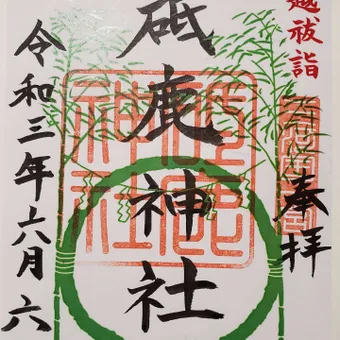 越祓詣
奉拝
砥鹿神社
砥鹿神社
令和三年六月六